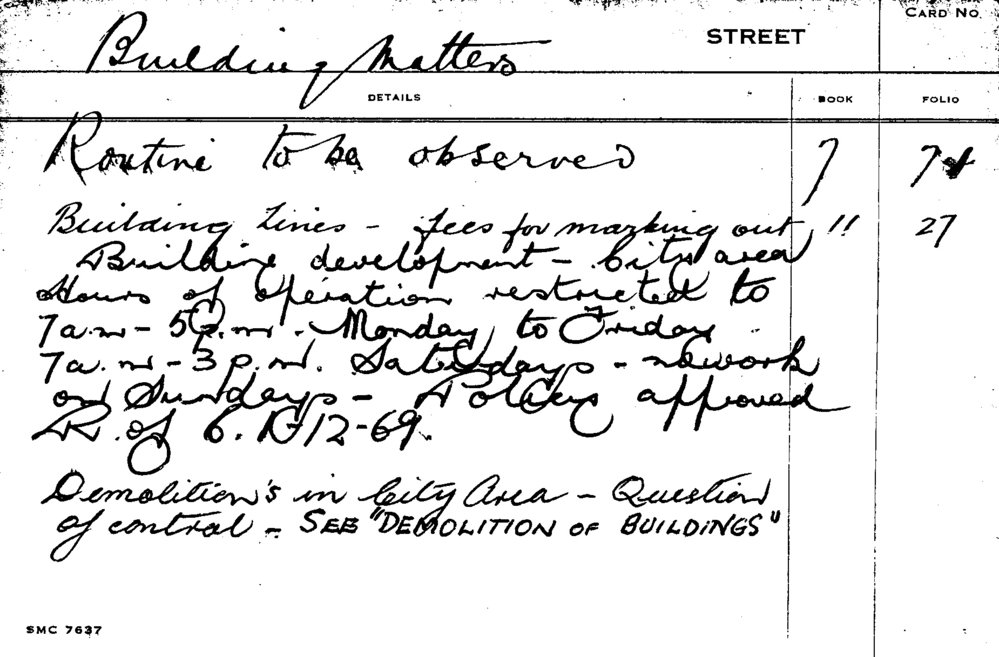 CARD NO.
Building Matters STREET
DETAILS BOOK FOLIO
Routine to be observed 7 7
Building Lines - fees for marking out 11 27
Building development - City area
Hours of operation restricted to
7a.m - 5p.m. Monday to Friday
7a.m - 3p.m. Saturdays - no work
on Sundays - Policy approved
R. of 6. 12-69.
Demolition's in City Area - Question
of control - SEE "DEMOLITION OF BUILDINGS"
SMC 7637